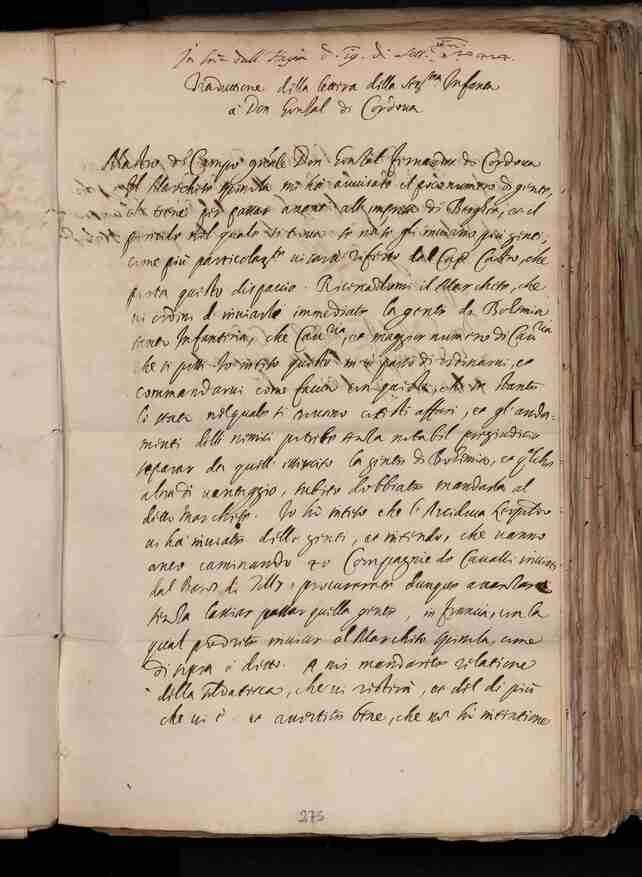 Traduttione della lettera della Ser.ma Infanta
à Don Gonsal di Cordova
Mastro di Campo gn̄ale Don Gonsal Fernandez di Cordova
Il Marchese Spinola mi hà avvisato il numero di gente,
che tiene per passar avanti all'impresa di Berghes, et il
pericolo nel quale si trova se non gli inviamo più gente,
come più particolarm.te vi sarà riferto dal Cap. Castro, che
porta questo dispaccio. Ricercandomi il Marchese, che
vi ordini d'inviarle immediate la gente di Boemia
tanto Infanteria, che Cav.ria, et maggior numero di Cav.ria
che si può. Io inteso questo mi è parso di ordinarvi, et
commandarvi come faccio con questa, che
lo stato nel quale si trovano affari, et gl'anda=
menti delli nemici potrete senza notabil pregiudicio
separar da quell' essercito la gente di Boemia, et
altra di vantaggio, subito dobbiate mandarla al
detto Marchese. Io hò inteso che l'Arciduca Leopoldo
vi hà inviato delle genti, et intendo, che vanno
anco caminando 20 Compagnie de Cavalli inviati
dal Baron di Tilly, procurarete dunque
senza lasciar passar quella gente, in Francia, con la
qual potrete inviar al Marchese Spinola, come
di sopra è detto. A mi mandarete relatione
della soldatesca, che vi resterà, et del di più
che vi è et avertite bene, che non hò intentione
275